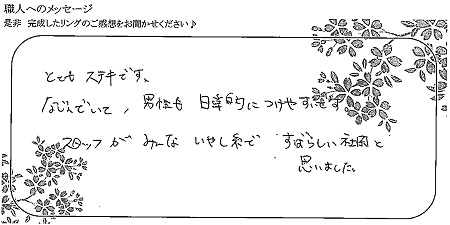 職人へのメッセージ
是非 完成したリングのご感想をお聞かせください♪
とても ステキです。
なじんでいて、男性も 日常的に つけやすいです
スタッフが みんな いやし系で すばらしい社風と
思いました。